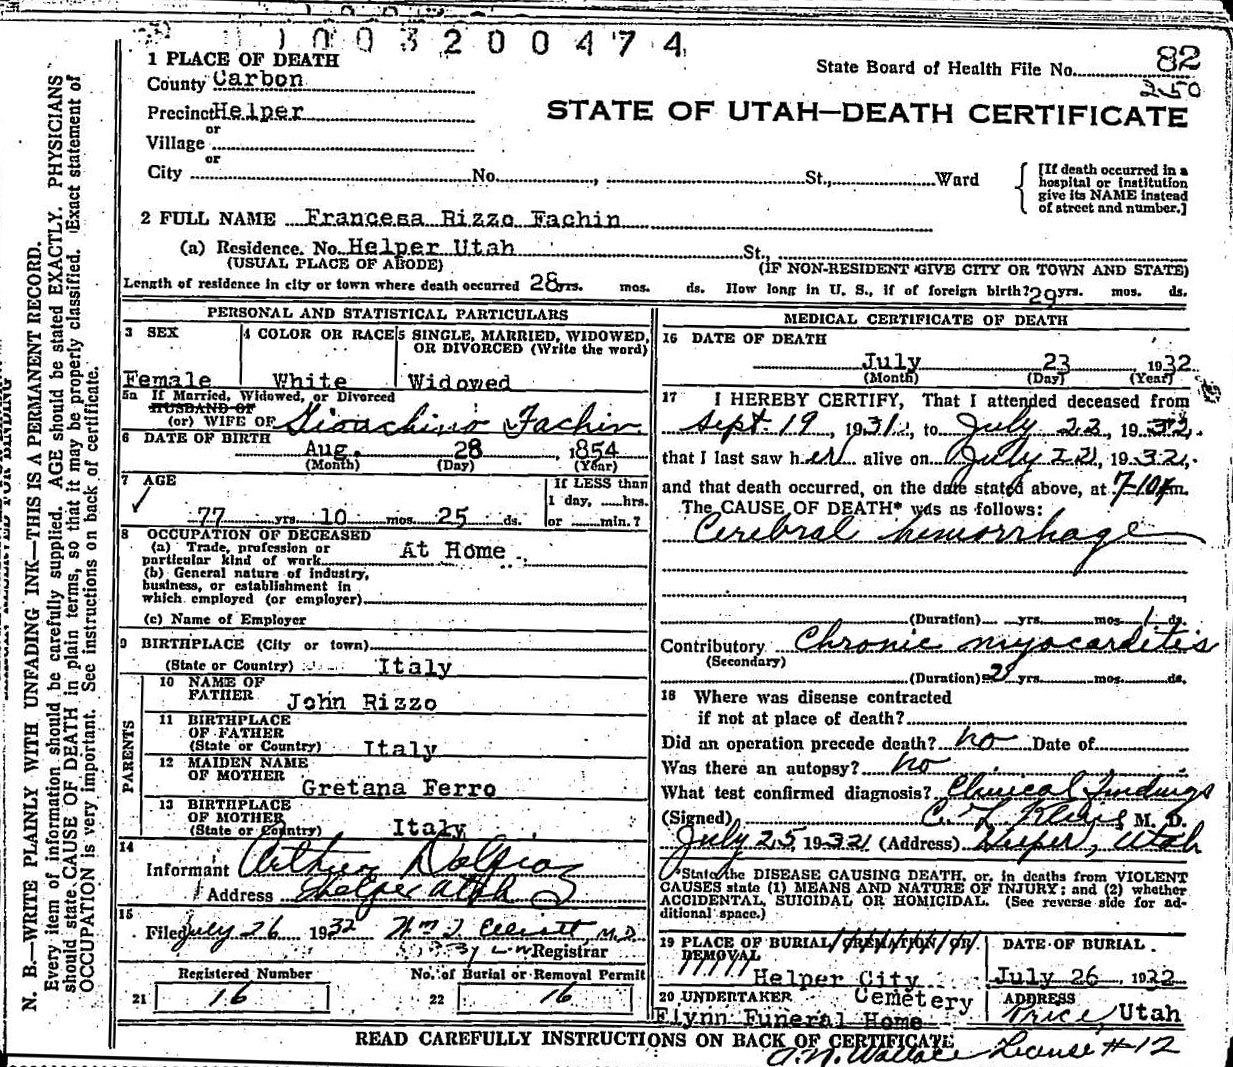 1003200474
1 PLACE OF DEATH
County Carbon
State Board of Health File No. 82
250
Precinct Helper
STATE OF UTAH—DEATH CERTIFICATE
or
Village
or
City No. , St., Ward
[If death occurred in a hospital or institution give its NAME instead of street and number.]
2 FULL NAME Francesa Rizzo Fachin
(a) Residence. No. Helper Utah St.,
(USUAL PLACE OF ABODE) (IF NON-RESIDENT GIVE CITY OR TOWN AND STATE)
Length of residence in city or town where death occurred 28 yrs. mos. ds. How long in U. S., if of foreign birth? 29 yrs. mos. ds.
PERSONAL AND STATISTICAL PARTICULARS
3 SEX 4 COLOR OR RACE 5 SINGLE, MARRIED, WIDOWED, OR DIVORCED (Write the word)
Female White Widowed
5a If Married, Widowed, or Divorced
HUSBAND OF
(or) WIFE OF Gioachino Fachin
6 DATE OF BIRTH
Aug. 28, 1854
(Month) (Day) (Year)
7 AGE
If LESS than
1 day, hrs.
77 yrs. 10 mos. 25 ds. or min.?
8 OCCUPATION OF DECEASED
(a) Trade, profession or
particular kind of work At Home
(b) General nature of industry,
business, or establishment in
which employed (or employer)
(c) Name of Employer
9 BIRTHPLACE (City or town)
(State or Country) Italy
PARENTS
10 NAME OF
FATHER John Rizzo
11 BIRTHPLACE
OF FATHER
(State or Country) Italy
12 MAIDEN NAME
OF MOTHER
Gretana Ferro
13 BIRTHPLACE
OF MOTHER
(State or Country) Italy
14
Informant Arthur
Address Helper Utah
15
Filed July 26 1932 Wm J. Elliott, M.D.
Registrar
Registered Number No. of Burial or Removal Permit
21 16 22 16
MEDICAL CERTIFICATE OF DEATH
16 DATE OF DEATH
July 23 1932
(Month) (Day) (Year)
17 I HEREBY CERTIFY, That I attended deceased from
Sept. 19, 1931, to July 22, 1932,
that I last saw her alive on July 22, 1932,
and that death occurred, on the date stated above, at 7-10 m.
The CAUSE OF DEATH* was as follows:
Cerebral hemorrhage
(Duration) yrs. mos. 1 ds.
Contributory Chronic myocarditis
(Secondary)
(Duration) 2 yrs. mos. ds.
18 Where was disease contracted
if not at place of death?
Did an operation precede death? no Date of
Was there an autopsy? no
What test confirmed diagnosis? Clinical findings
(Signed) C. M. D.
July 25, 1932 (Address) Helper, Utah
*State the DISEASE CAUSING DEATH, or, in deaths from VIOLENT
CAUSES state (1) MEANS AND NATURE OF INJURY; and (2) whether
ACCIDENTAL, SUICIDAL OR HOMICIDAL. (See reverse side for ad-
ditional space.)
19 PLACE OF BURIAL, CREMATION OR REMOVAL DATE OF BURIAL
Helper City July 26 1932
Cemetery
20 UNDERTAKER ADDRESS
Flynn Funeral Home Price, Utah
READ CAREFULLY INSTRUCTIONS ON BACK OF CERTIFICATE
Wallace License #12
N. B.—WRITE PLAINLY WITH UNFADING INK—THIS IS A PERMANENT RECORD.
Every item of information should be carefully supplied. AGE should be stated EXACTLY. PHYSICIANS
should state CAUSE OF DEATH in plain terms, so that it may be properly classified. Exact statement of
OCCUPATION is very important. See instructions on back of certificate.